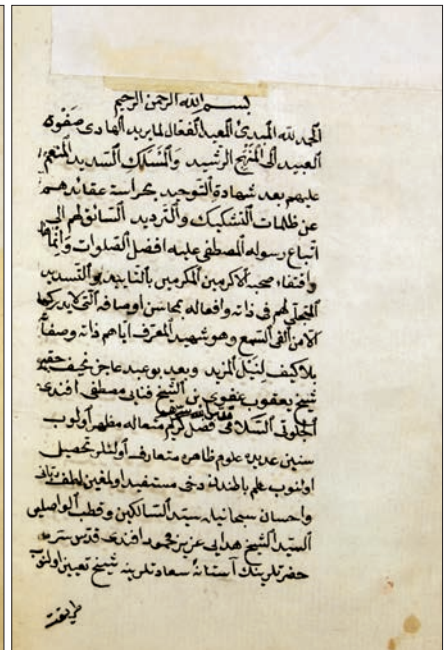 بسم الله الرحمن الرحيم
الحمد لله المبدئ المعيد الفعال لما يريد الهادى صفوة
العبيد الى المنهج الرشيد والمسلك السديد المنعم
عليهم بعد شهادة التوحيد بحراسة عقائدهم
عن ظلمات التشكيك والترديد السائق لهم الى
اتباع رسوله المصطفى عليه افضل الصلوات
واقتفاء صحبه الاكرمين المكرمين بالتاييد والتسديد
المتجلى لهم فى ذاته وافعاله بمحاسن اوصافه التى لا يدركها
الا من القى السمع وهو شهيد المعرف اياهم ذاته وصفاته
بلا كيف لنيل المزيد وبعد بو عبد عاجز نحيف حقير
شيخ يعقوب عفوى بن الشيخ فنايى مصطفى افندى
الجلوتى السلامى فضل كريم متعاله مظهر اولوب
سنين عديده علوم ظاهره متعارف اولنلر تحصيل
اولنوب علم باطندن دخى مستفيد اولمغين لطف ربانى
واحسان سبحانيله سيد السالكين وقطب الواصلين
السيد الشيخ هدايى عزيز محمود افندى قدس سره
حضرتلرينك آستانه سعادتلرينه شيخ تعيين اولنوب
طريقت